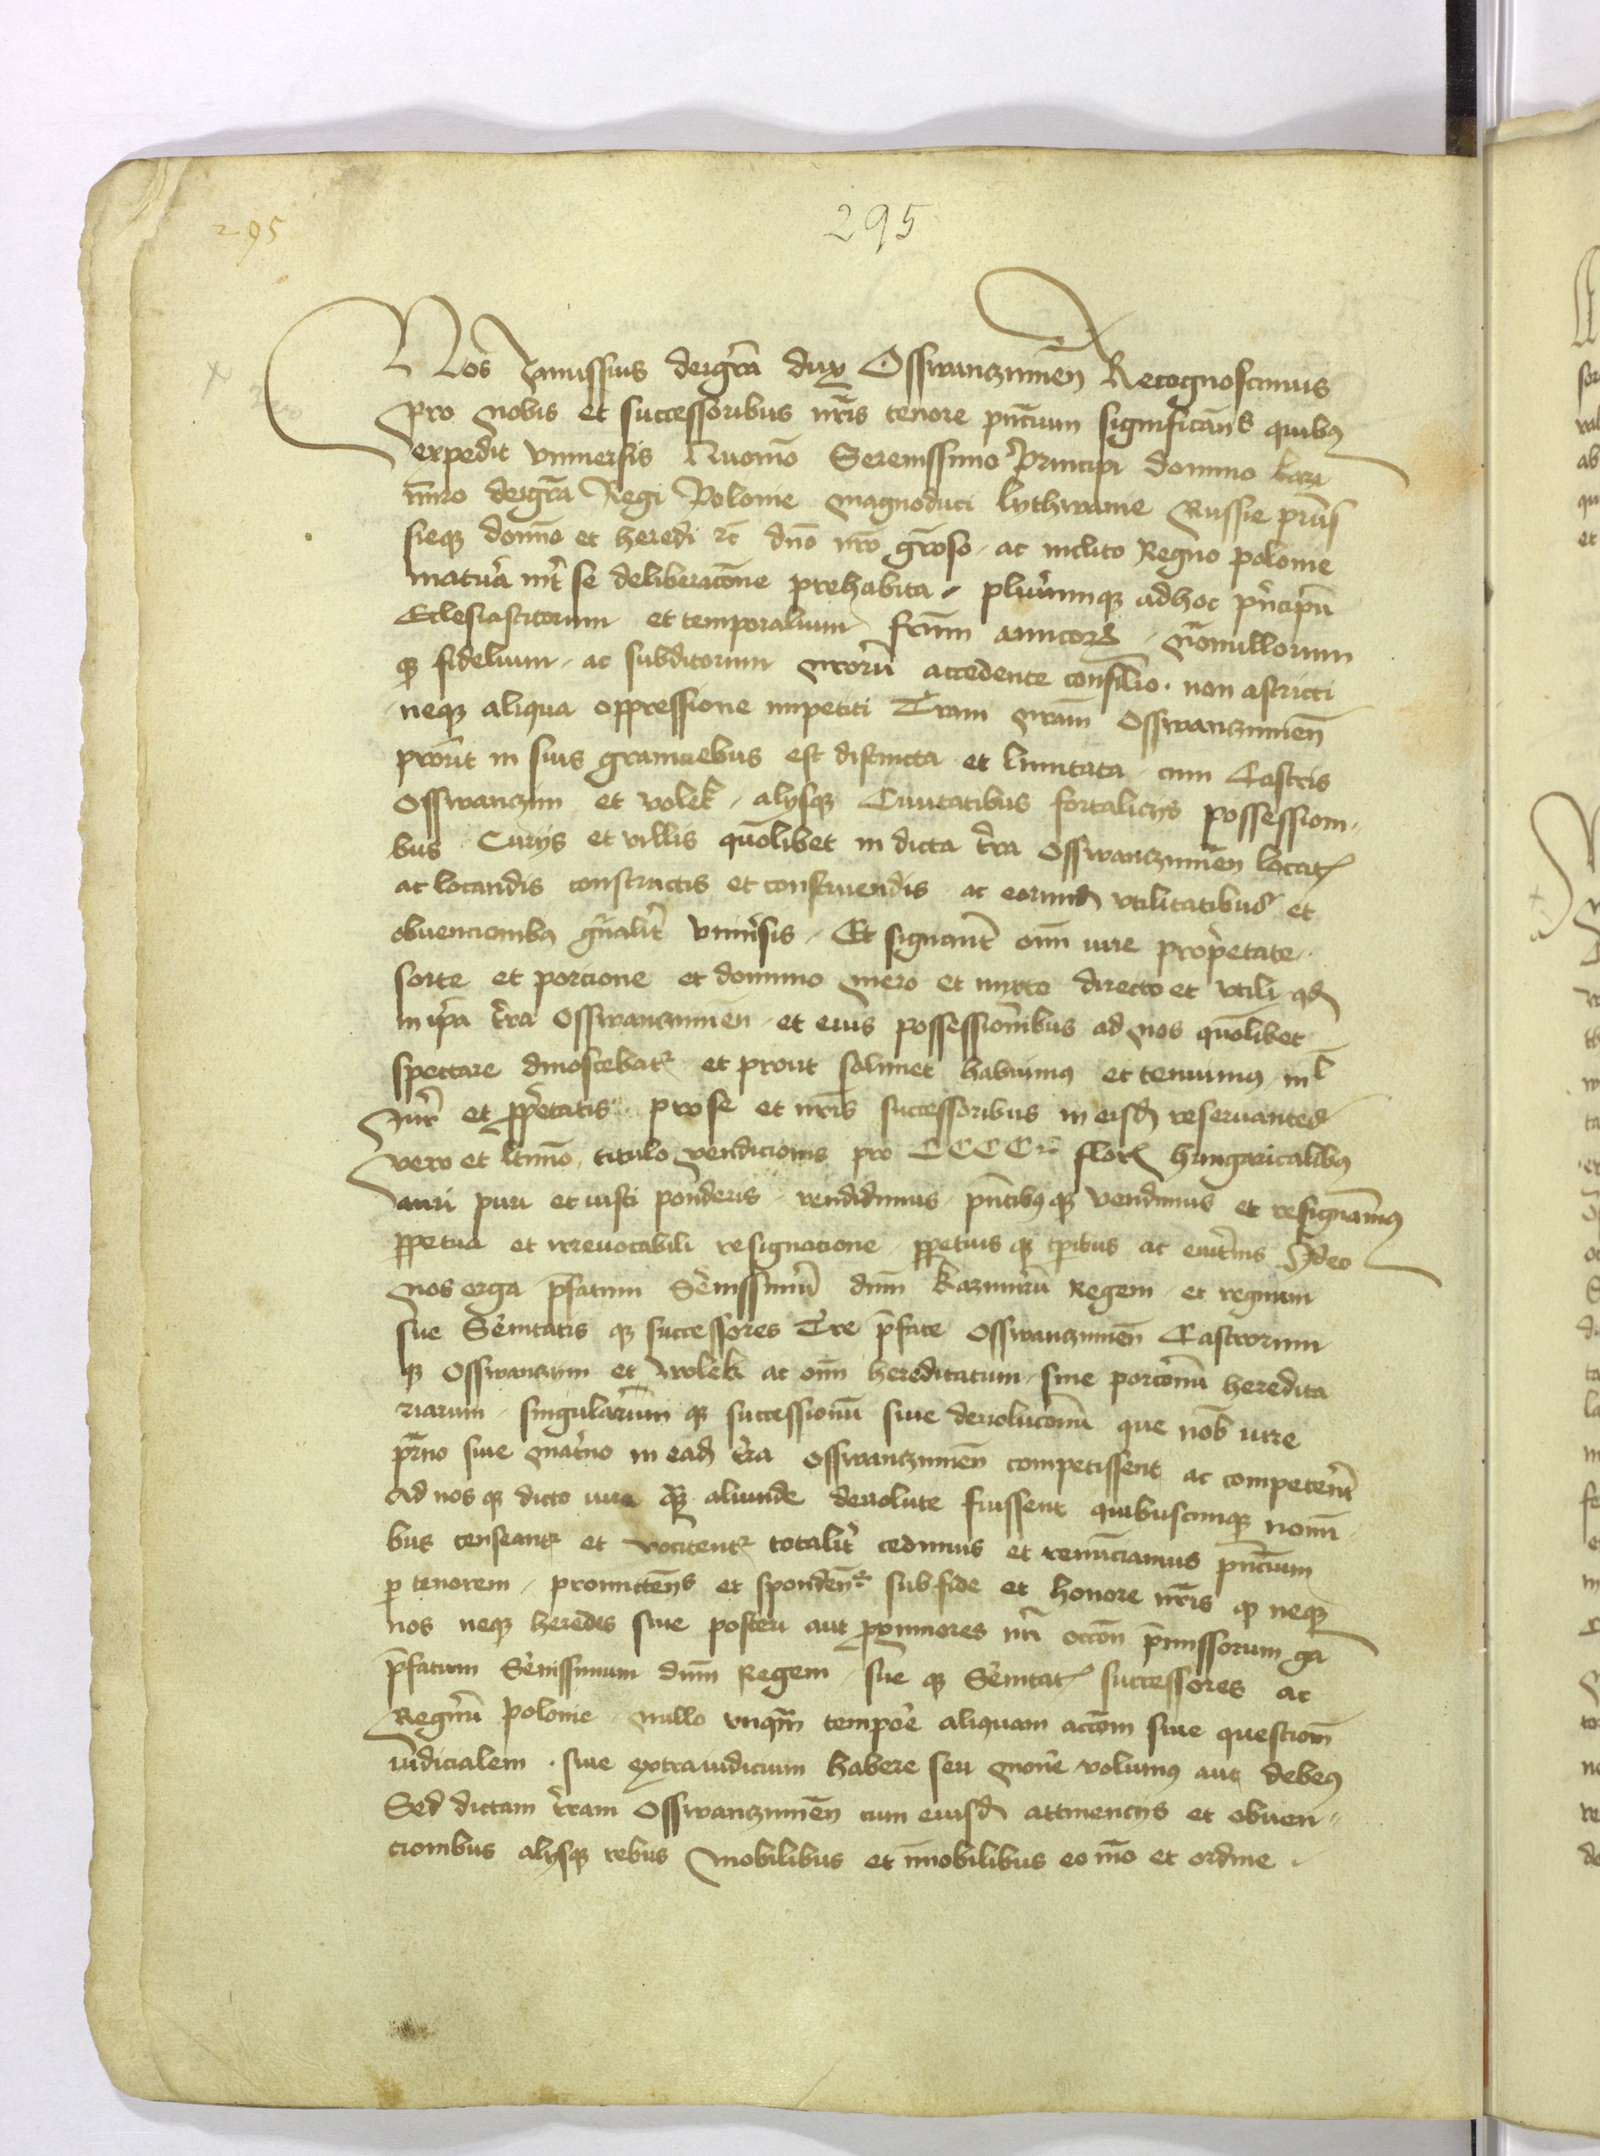 295
295
Nos Janussius deigr̄a dux Osswanczimen̄ Recognoscimus
pro nobis et successoribus nr̄is tenore pn̄cium significan̄s quibus
expedit vniuersis Quomō Serenissimo Principi domino kazi
miro deigr̄a Regi Polonie magnoduci lythwanie Russie prus
sieqꝫ domn̄o et heredi zc̄ dn̄o nr̄o gr̄oso ac inclito Regno polonie
matura int̄ se deliberacōne prehabita plurimumqꝫ adhoc principū
Eclesiasticorum et temporalium fr̄um amicorꝝ nōnullorum
qꝫ fidelium ac subditorum nr̄orum accedente consilio non astricti
neqꝫ aliqua oppressione impetiti Tram nr̄am Osswanczimen̄
prout in suis graniciebus est distincta et limitata cum Castris
Osswanczim et volek alysqꝫ Ciuitatibus fortalicys possessioni
bus Curys et villis quōlibet in dicta tr̄a Osswanczimen̄ locatꝭ
ac locandis constructis et construendis ac eorundꝫ vtilitatibus et
obuencionibꝫ gn̄alit̄ vniu̓sis Et signant̄ om̄i iure proprietate
sorte et porcione et dominio mero et mixto directo et vtili qd̄
in ip̄a tr̄a Osswanczimen̄ et eius possessionibus ad nos quōlibet
spectare dinoscebatꝛ et prout solimet habuimꝫ et tenuimꝫ nil̄
Juris et ꝓprietatis pro se et nr̄is successoribus in eisdꝫ reservantes
vero et ltimō titulo vendicionis pro florꝭ hungaricalibꝫ
auri puri et iusti ponderis vendidimus pn̄tibꝫqꝫ vendimus et resignamꝫ
ꝑpetua et irreuocabili resignacione ꝑpetuis qꝫ tp̄ibus ac euit̄nis Ideo
nos erga p̄fatum Sēnissimū dn̄m kazimirū Regem et regnum
sue Sēnitatis qꝫ successores Tre p̄fate Osswanczimen̄ Castrorum
qꝫ Osswanczim et Wolek ac om̄i hereditatum siue porcionū heredita
riarum singularium qꝫ successionū siue deuolucionū que nob̄ iure
pr̄no siue mat̄no in eadꝫ tr̄a Osswanczimen̄ competissent ac competer̄t
Ad nos qꝫ dicto iure aliunde deuolute fuissent quibuscunqꝫ nomi
bus censeantꝛ et vocitentꝛ totalit̄ cedimus et renūciamus pn̄cium
ꝑ tenorem promitten̄s et sponden̄ sub fide et honore nr̄is qꝫ neqꝫ
nos neqꝫ heredes siue posteri aut ꝓximiores nr̄i occōn p̄missorum ga
p̄fatum Sēnissimum dn̄m Regem sue qꝫ Sēnitatꝭ successores ac
Regnū polonie nullo vnqꝫ̄ tempore aliquam accōm siue questionē
iudicialem siue extraiudicium habere seu mouere volumꝫ aut debemꝫ
Sed dictam tr̄am Osswanczimen̄ cum eiusdꝫ attinencys et obuen
cionibus alysqꝫ rebus mobilibus et īmobilibus eo mō et ordine